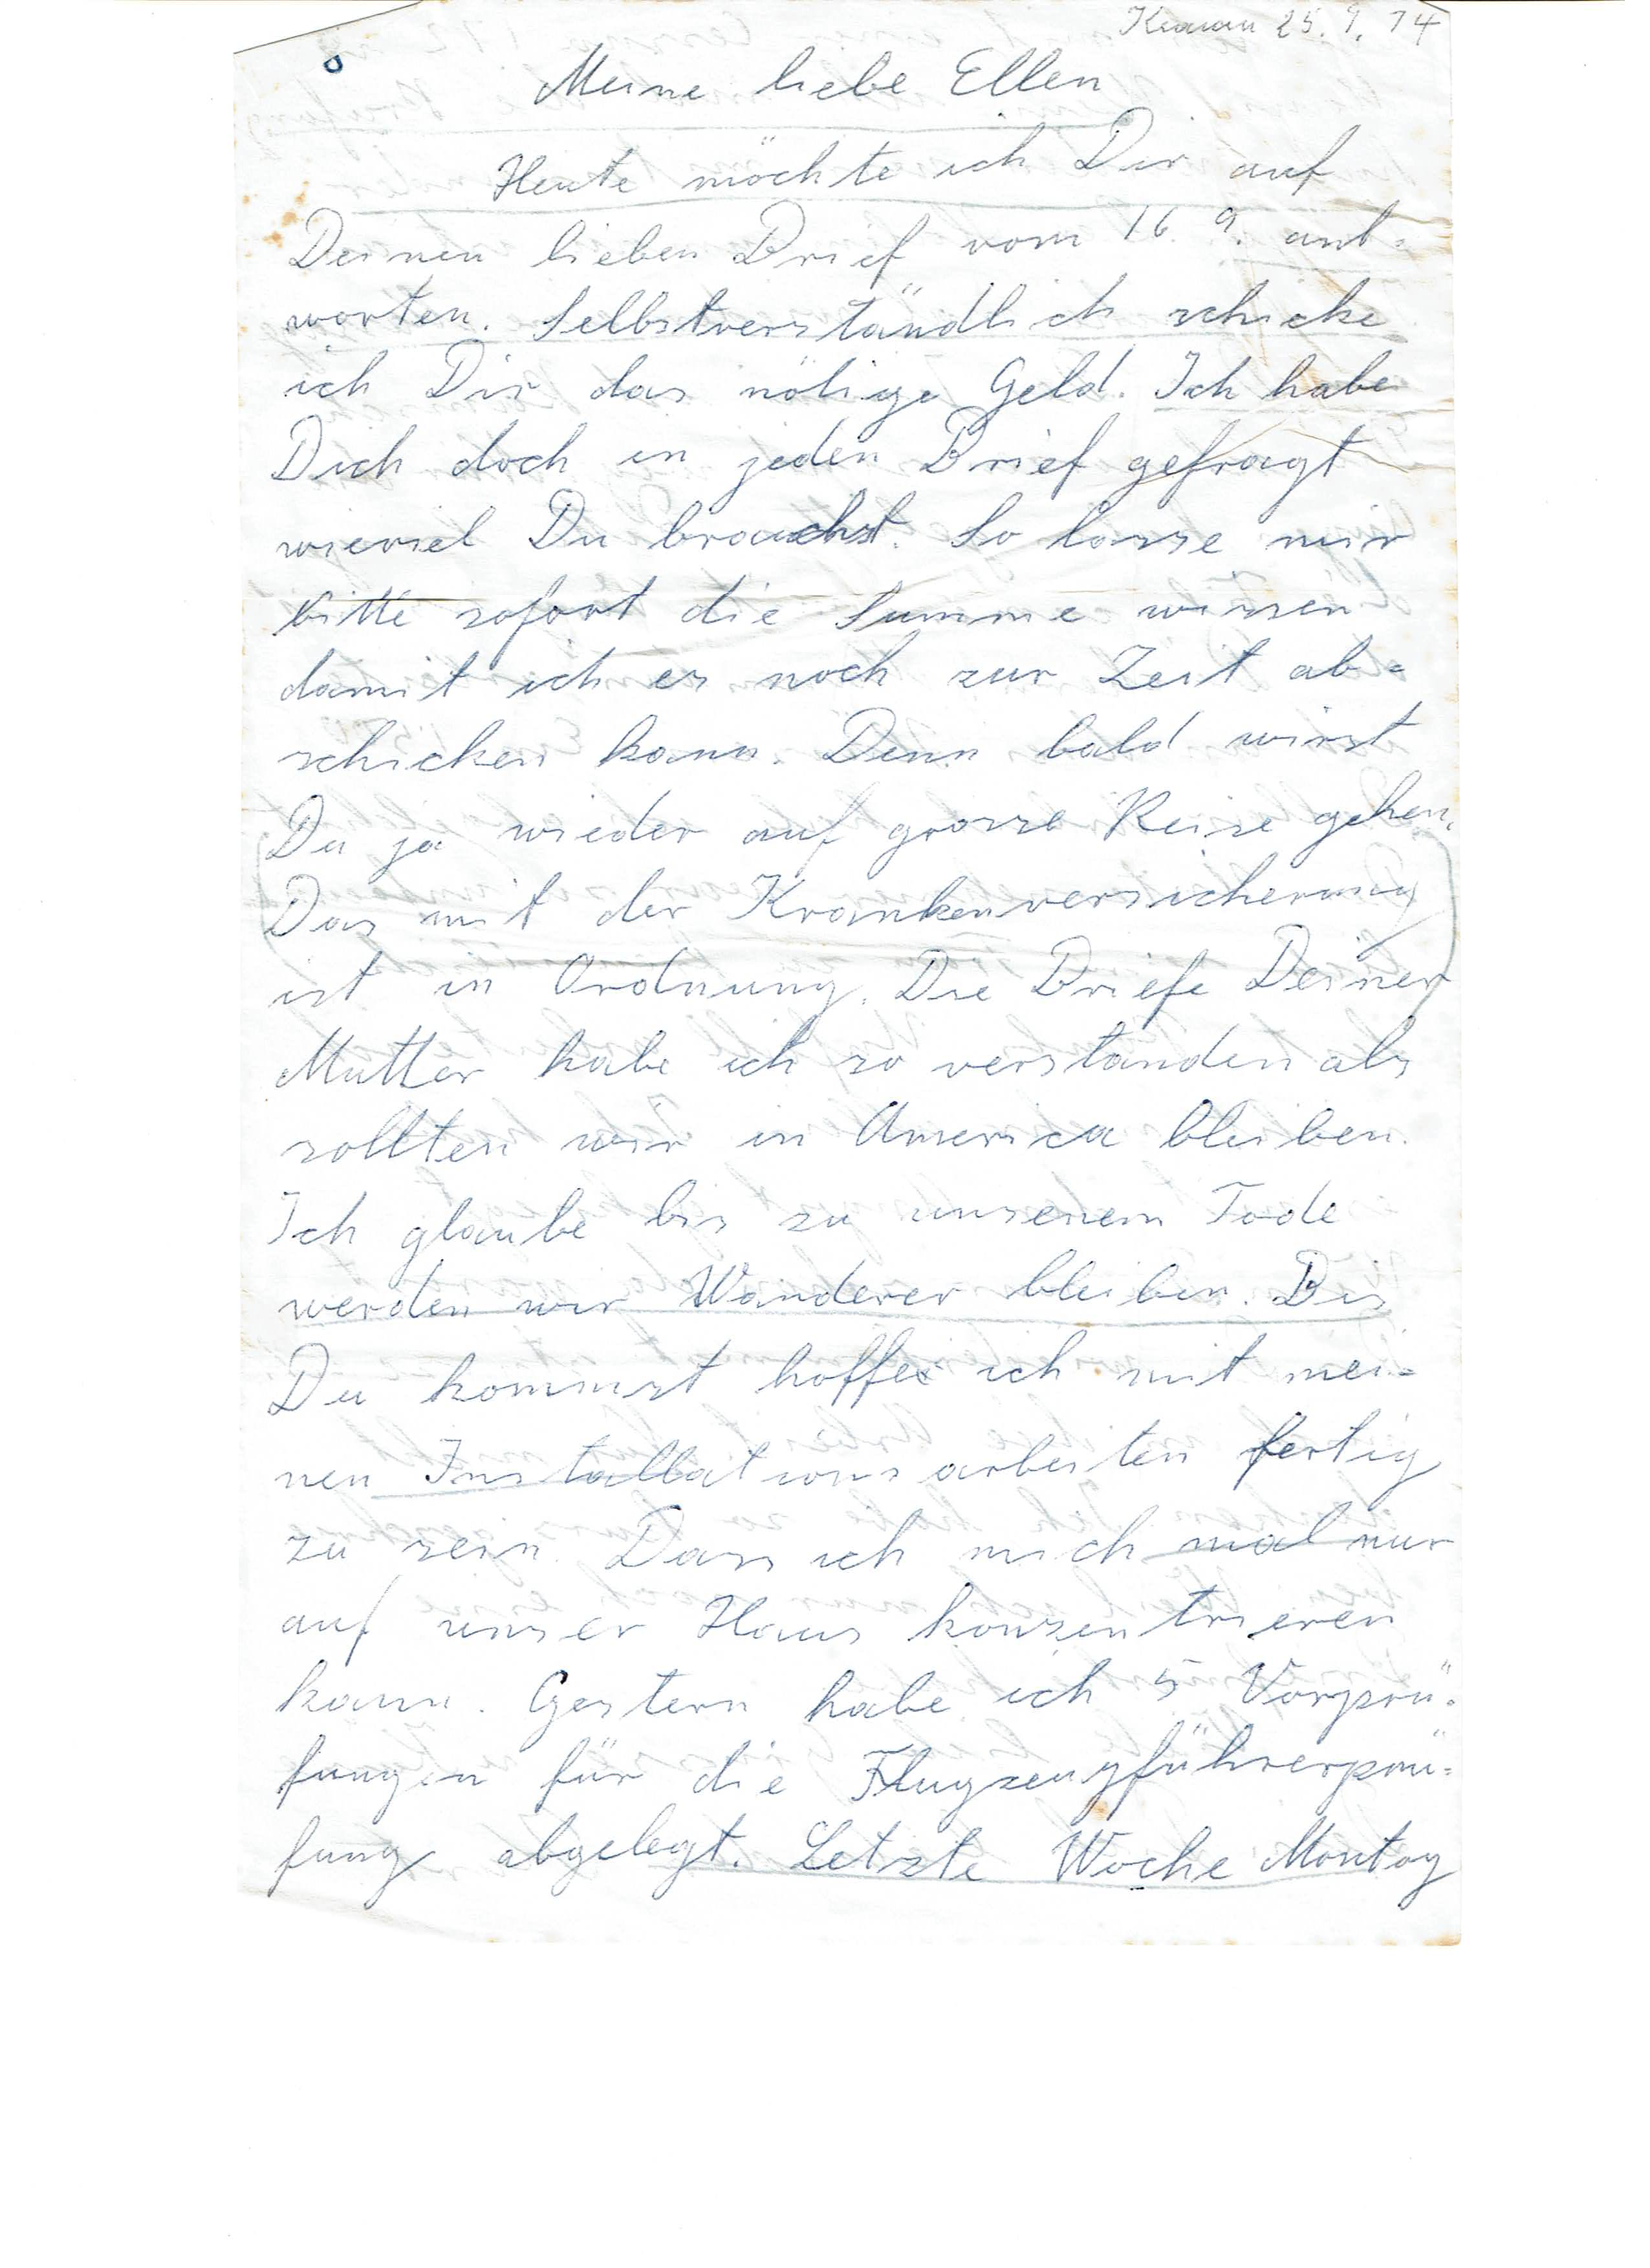 25. 9. 74
Meine liebe Ellen
Heute möchte ich Dir auf
Deinen lieben Brief vom 16. 9. ant=
worten. Selbstverständlich schicke
ich Dir das nötige Geld. Ich habe
Dich doch in jeden Brief gefragt
wieviel Du brauchst. So lasse mir
bitte sofort die Summe wissen
damit ich es noch zur Zeit ab=
schicken kann. Denn bald wirst
Du ja wieder auf grosse Reise gehen.
Das mit der Krankenversicherung
ist in Ordnung. Die Briefe Deiner
Mutter habe ich so verstanden als
sollten wir in America bleiben.
Ich glaube bis zu unserem Tode
werden wir Wanderer bleiben. Bis
Du kommst hoffe ich mit mei=
nen Installationsarbeiten fertig
zu sein. Dass ich mich mal nur
auf unser Haus konzentrieren
kann. Gestern habe ich 5 Vorprü=
fungen für die Flugzeugführerprü=
fung abgelegt. Letzte Woche Montag